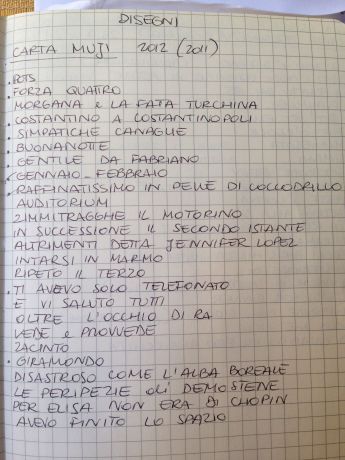 DISEGNI
CARTA MUJI 2012 (2011)
. POTS
. FORZA QUATTRO
MORGANA e LA FATA TURCHINA
COSTANTINO A COSTANTINOPOLI
. SIMPATICHE CANAGLIE
. BUONANOTTE
. GENTILE DA FABRIANO
. GENNAIO - FEBBRAIO
. RAFFINATISSIMO IN PELLE DI COCCODRILLO
AUDITORIUM
ZIMMITRAGGHE IL MOTORINO
IN SUCCESSIONE IL SECONDO ISTANTE
ALTRIMENTI DETTA JENNIFER LOPEZ
INTARSI IN MARMO
RIPETO IL TERZO
. TI AVEVO SOLO TELEFONATO
E VI SALUTO TUTTI
OLTRE L'OCCHIO DI RA
VEDE e PROVVEDE
ZACINTO
. GIRAMONDO
DISASTROSO COME L'ALBA BOREALE
LE PERIPEZIE di DEMOSTENE
PER ELISA NON ERA DI CHOPIN
AVEVO FINITO LO SPAZIO